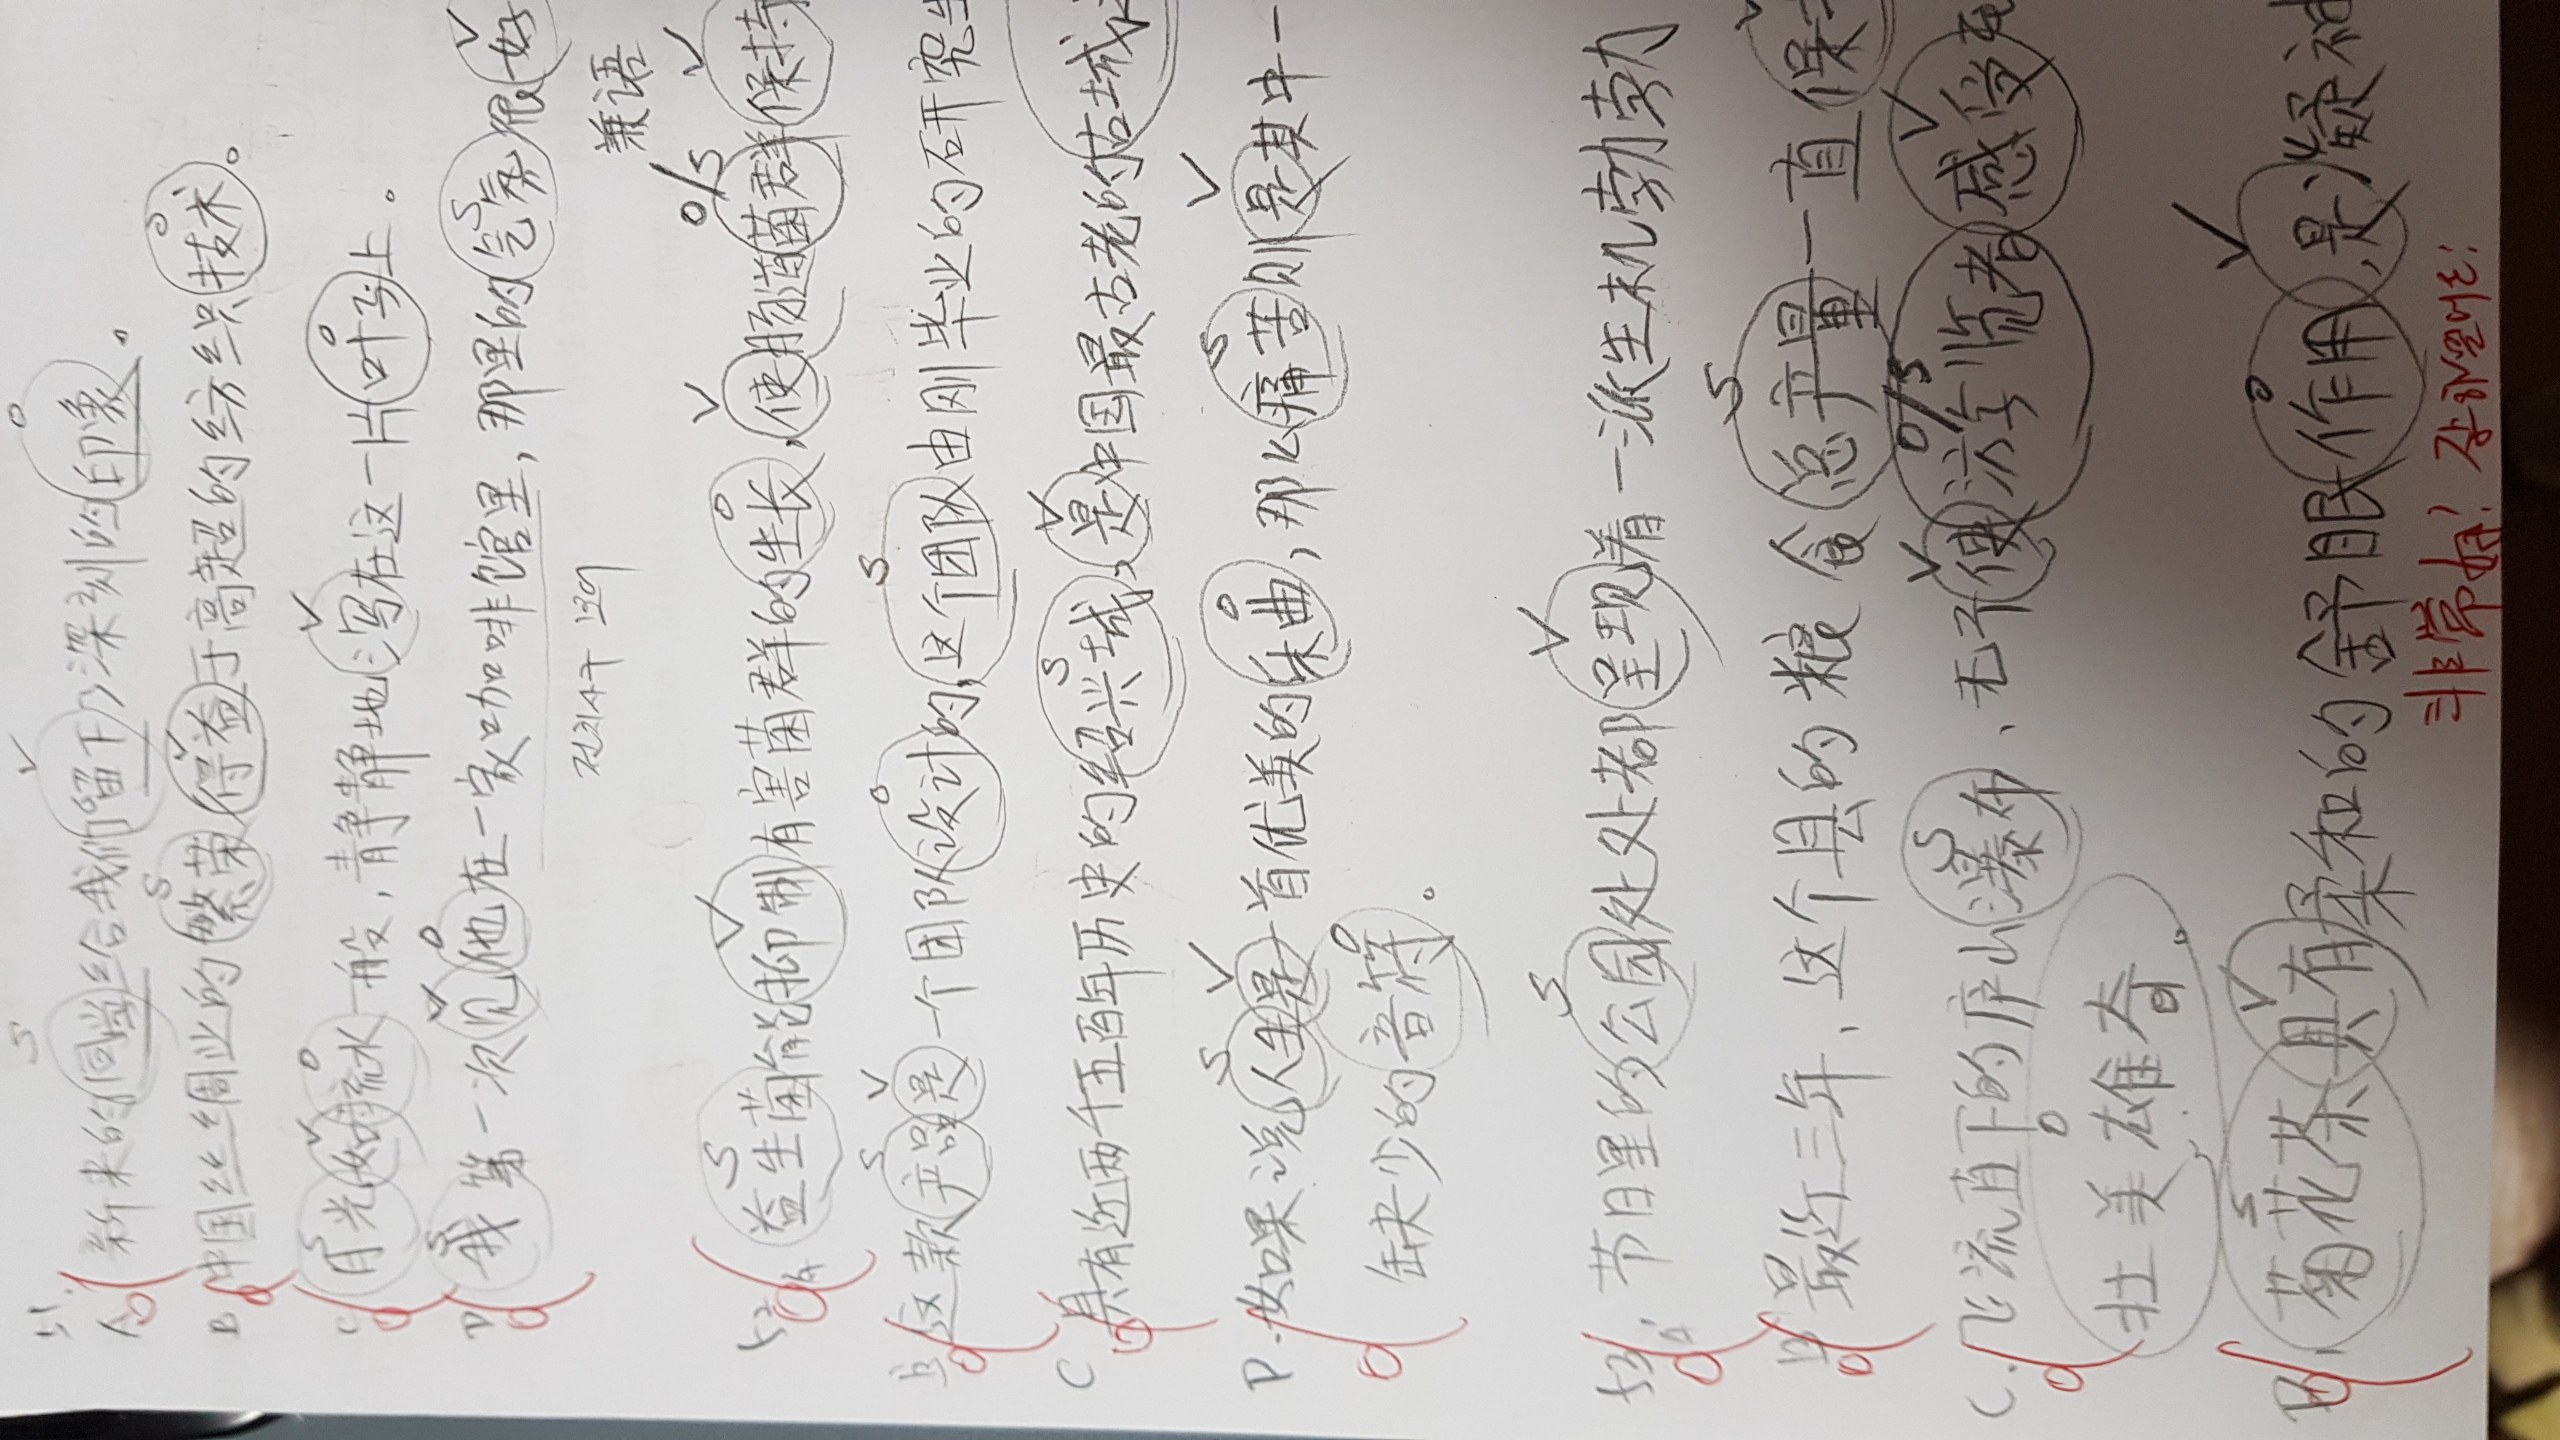 51.
A 新来的同学给我们留下了深刻的印象。
B 中国丝绸业的繁荣得益于高超的纺织技术。
C 月光如流水一般，静静地泻在这一片叶子上。
D 我第一次见他在一家咖啡馆里，那里的气氛很好
兼语
52 A 益生菌能抑制有害菌群的生长，使肠道菌群保持
B 这款产品是一个团队设计的，这个团队由刚毕业的研究生
C 具有近两千五百年历史的绍兴城，是中国最古老的古城
D. 如果说人生是一首优美的乐曲，那么痛苦则是其中一
缺少的音符。
53 A. 节日里的公园处处都呈现着一派生机勃勃
B 最近三年、这个县的粮食总产量一直保
C. 飞流直下的庐山瀑布、无不使游览者感受
壮美、雄奇。
D 菊花茶具有柔和的舒眠作用，是凝神
非常好! 잘하셨어요!